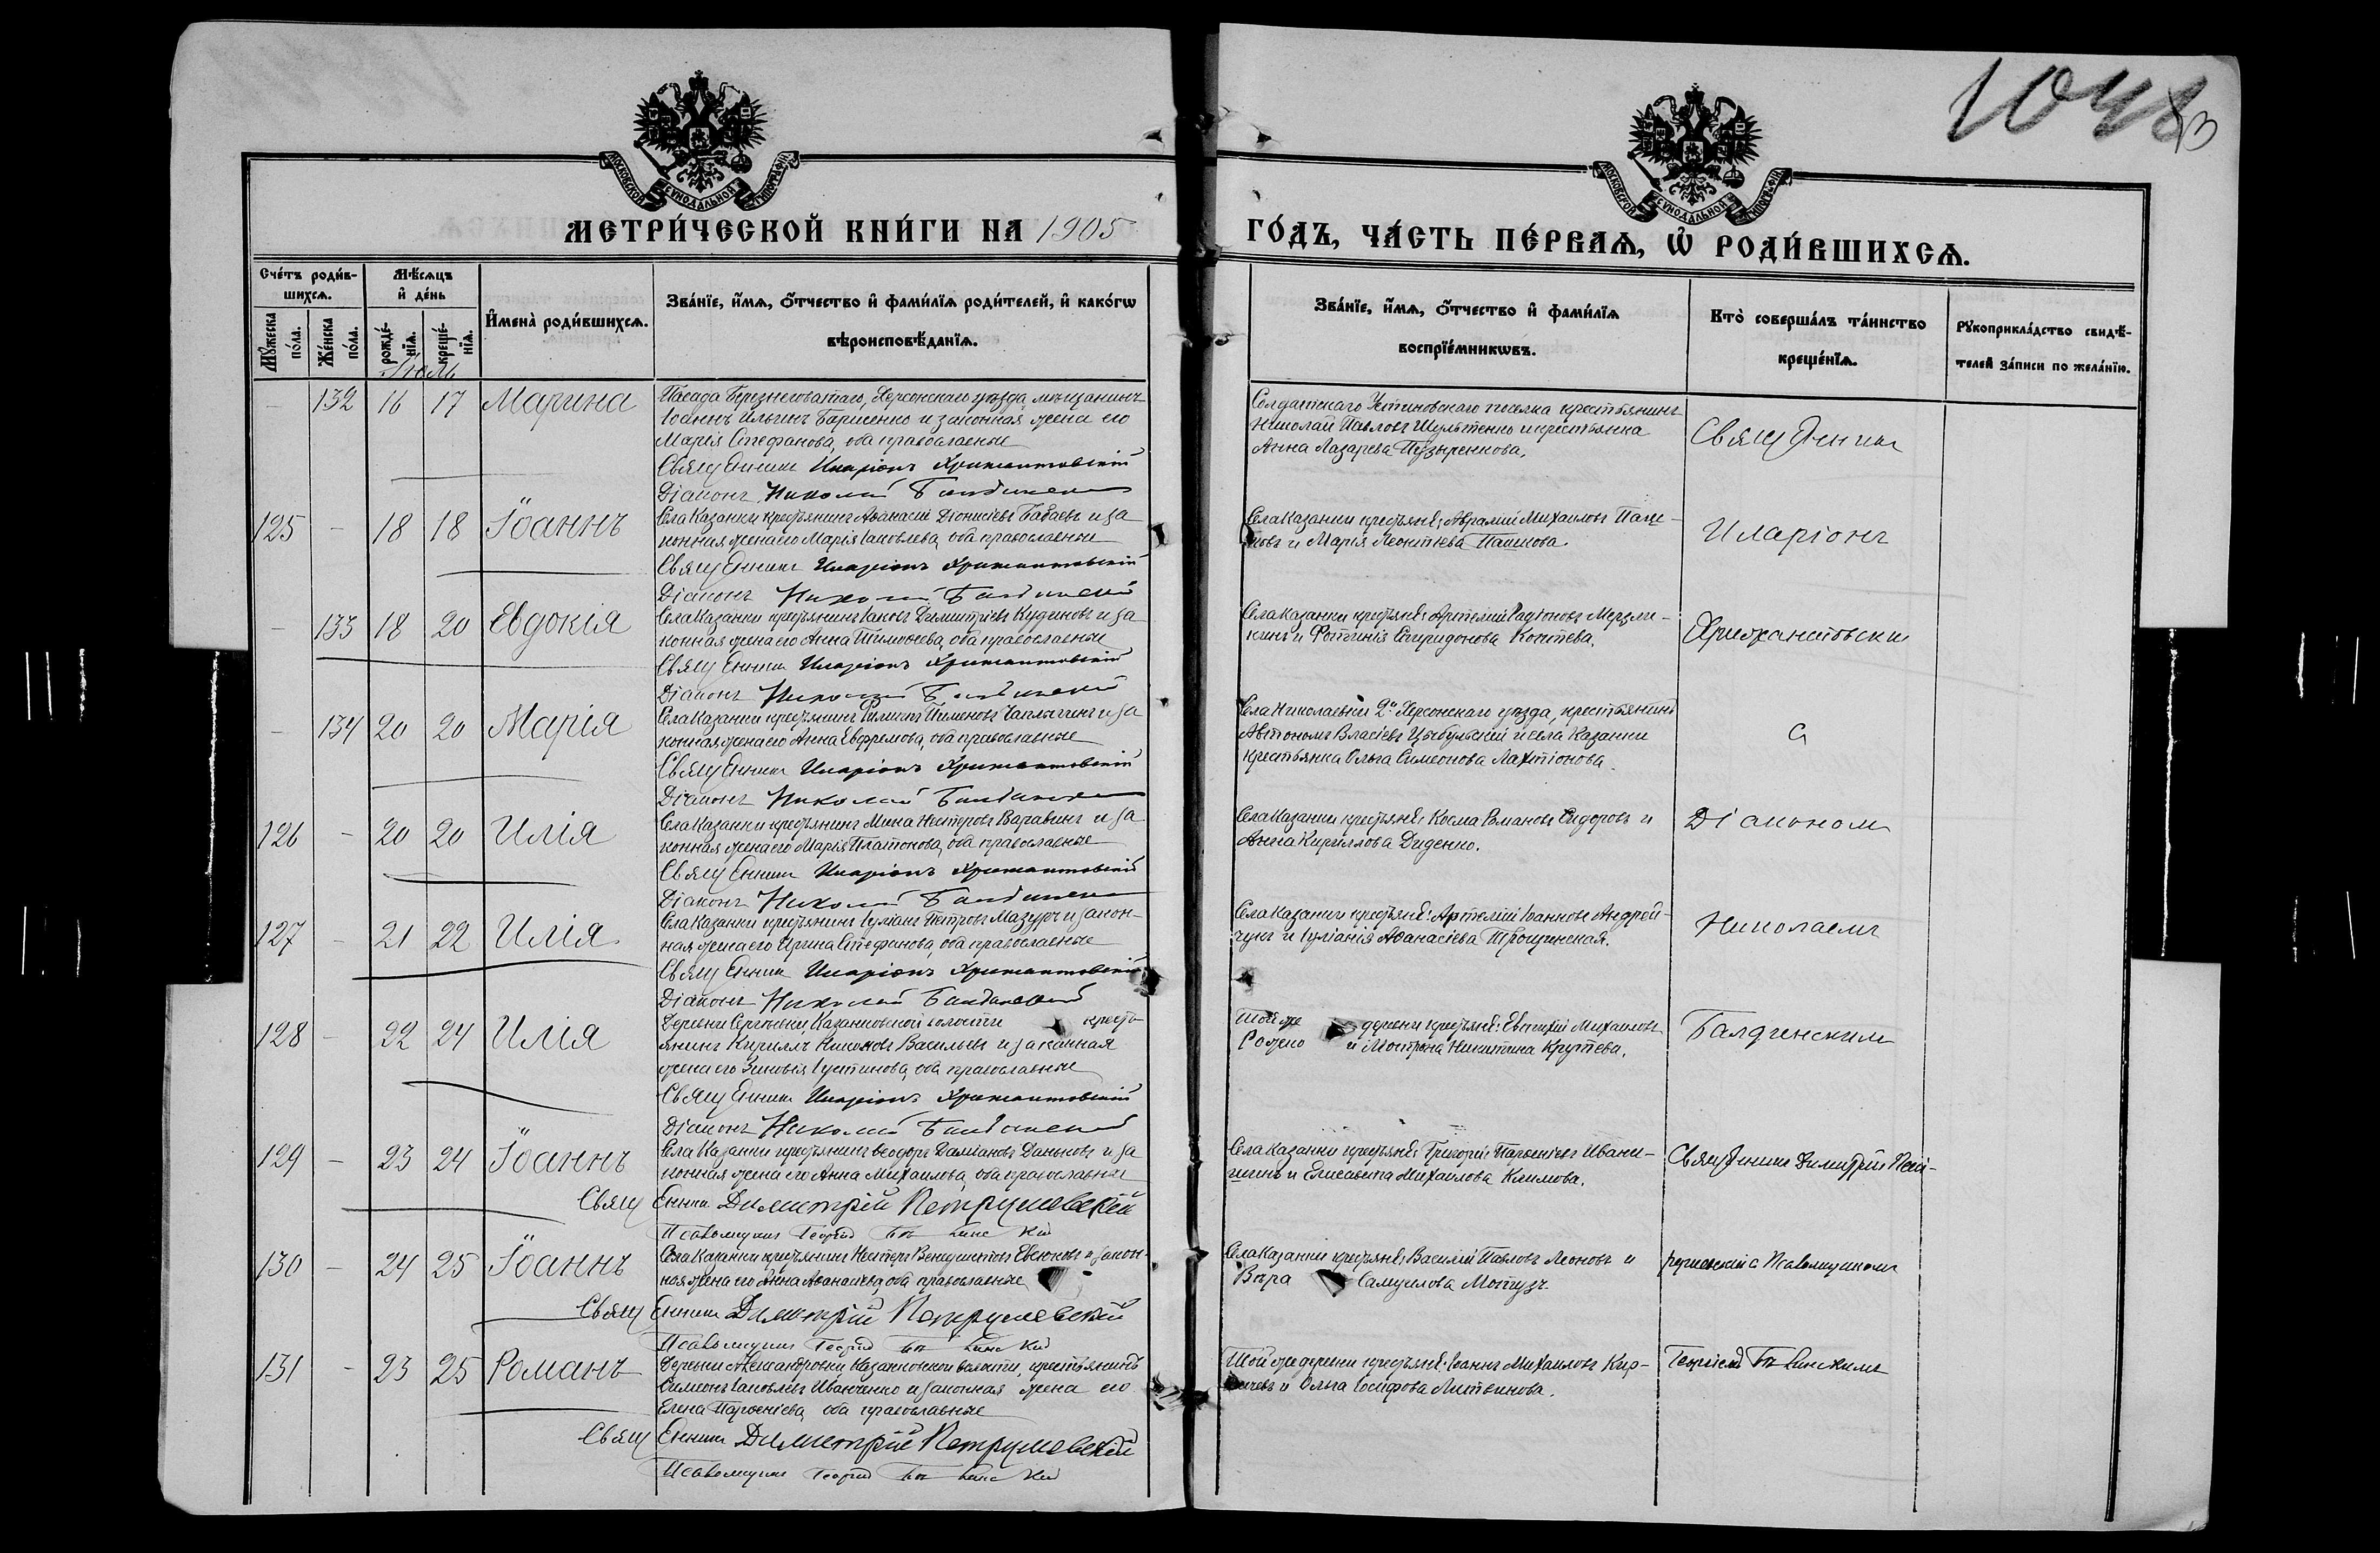 1048
МОСКОВСКОЙ СѴНОДАЛЬНОЙ ТИПОГРАФІИ
МОСКОВСКОЙ СѴНОДАЛЬНОЙ ТИПОГРАФІИ
МЕТРИ́ЧЕСКОЙ КНИ́ГИ НА 1905 ГО́ДЪ, ЧА́СТЬ ПЕ́РВАѦ, Ѡ҆ РОДИ́ВШИХСѦ.
Сче́тъ роди́в-
шихсѧ.
Мꙋ́жеска по́ла.
Же́нска по́ла.
Мѣ́сѧцъ
и҆ де́нь
рожде́-
нїѧ.
креще́-
нїѧ.
И҆мена̀ роди́вшихсѧ.
Зва́нїе, и҆́мѧ, ѻ҆́тчество и҆ фами́лїѧ роди́телей, и҆ како́гѡ
вѣроисповѣ́данїѧ.
Зва́нїе, и҆́мѧ, ѻ҆́тчество и҆ фами́лїѧ
воспрїе́мникѡвъ.
Кто̀ соверша́лъ та́инство
креще́нїѧ.
Рꙋкоприкла́дство свидѣ́-
телей за́писи по жела́нїю.
Іюль
- 132 16 17 Марина
Посада Березнеговатаго, Херсонскаго уѣзда, мѣщанинъ
Іоаннъ Ильинъ Борисенко и законная жена его
Марія Стефанова, оба православные
Священникъ Иларіонъ Хрисанфовскій
Діаконъ Николай Балдинскій
Солдатскаго Устиновскаго поселка крестьянинъ
Николай Павловъ Шульженко и крестьянка
Анна Лазарева Пузыренкова.
Священникъ
125 - 18 18 Іоаннъ
Села Казанки крестьянинъ Аѳанасій Діонисіевъ Бабаевъ и за
конная жена его Марія Іаковлева, оба православные
Священникъ Иларіонъ Хрисанфовскій
Діаконъ Николай Балдинскій
Села Казанки крестьяне: Авраамій Михаиловъ Паш-
ковъ и Марія Леонтіева Пашкова.
Иларіонъ
- 133 18 20 Евдокія
Села Казанки крестьянинъ Іаковъ Димитріевъ Кудиновъ и за
конная жена его Анна Тимоѳеева, оба православные
Священникъ Иларіонъ Хрисанфовскій
Діаконъ Николай Балдинскій
Села Казанки крестьяне: Артемій Родіоновъ Мерзли-
кинъ и Фотинія Спиридонова Коптева.
- 134 20 20 Марія
Села Казанки крестьянинъ Филиппъ Пименовъ Чаплыгинъ и за
конная жена его Анна Евфремова, оба православные
Священникъ Иларіонъ Хрисанфовскій
Діаконъ Николай Балдинскій
Села Николаевки 2й Херсонскаго уѣзда, крестьянинъ
Автономъ Власіевъ Цыбульскій и села Казанки
крестьянка Ольга Симеонова Лахтіонова.
С
126 - 20 20 Илія
Села Казанки крестьянинъ Мина Несторовъ Варавинъ и за
конная жена его Марія Платонова, оба православные
Священникъ Иларіонъ Хрисанфовскій
Діаконъ Николай Балдинскій
Села Казанки крестьяне: Косма Романовъ Сидоровъ и
Анна Кириллова Диденко.
Діакономъ
127 - 21 22 Илія
Села Казанки крестьянинъ Іуліанъ Петровъ Мазуръ и закон-
ная жена его Ирина Стефанова, оба православные
Священникъ Иларіонъ Хрисанфовскій
Діаконъ Николай Балдинскій
Села Казанки крестьяне: Артемій Іоанновъ Андрей-
чукъ и Іуліанія Аѳанасіева Трощинская.
Николаемъ
128 - 22 24 Илія
Деревни Сергѣевки, Казанковской волости кресть-
янинъ Кириллъ Никоновъ Васильевъ и законная
жена его Зиновія Іустинова, оба православные
Священникъ Иларіонъ Хрисанфовскій
Діаконъ Николай Балдинскій
Той же деревни крестьяне: Евѳимій Михаиловъ
Рожко и Матрона Никитина Крутева.
Балдинскимъ
129 - 23 24 Іоаннъ
Села Казанки крестьянинъ Ѳеодоръ Даміановъ Даньковъ и за
конная жена его Анна Михаилова, оба православные
Священникъ Димитрій Петрушевскій
Псаломщикъ Георгій
Села Казанки крестьяне: Григорій Парѳеніевъ Ивани-
шинъ и Елисавета Михаилова Климова.
Священникъ Димитрій Пет-
130 - 24 25 Іоаннъ
Села Казанки крестьянинъ Несторъ Венедиктовъ Евсюковъ и закон-
ная жена его Анна Аѳанасіева, оба православные
Священникъ Димитрій Петрушевскій
Псаломщикъ Георгій
Села Казанки крестьяне: Василій Павловъ Леоновъ и
Вѣра Самуилова Мотузъ.
рушевскій с Псаломщикомъ
131 - 23 25 Романъ
Деревни Александровки Казанковской волости, крестьянинъ
Симеонъ Іаковлевъ Иванченко и законная жена его
Елена Парѳеніева, оба православные
Священникъ Димитрій Петрушевскій
Псаломщикъ Георгій
Той же деревни крестьяне: Іоаннъ Михаиловъ Кир-
ичевъ и Ольга Іосифова Литвинова.
Георгіемъ